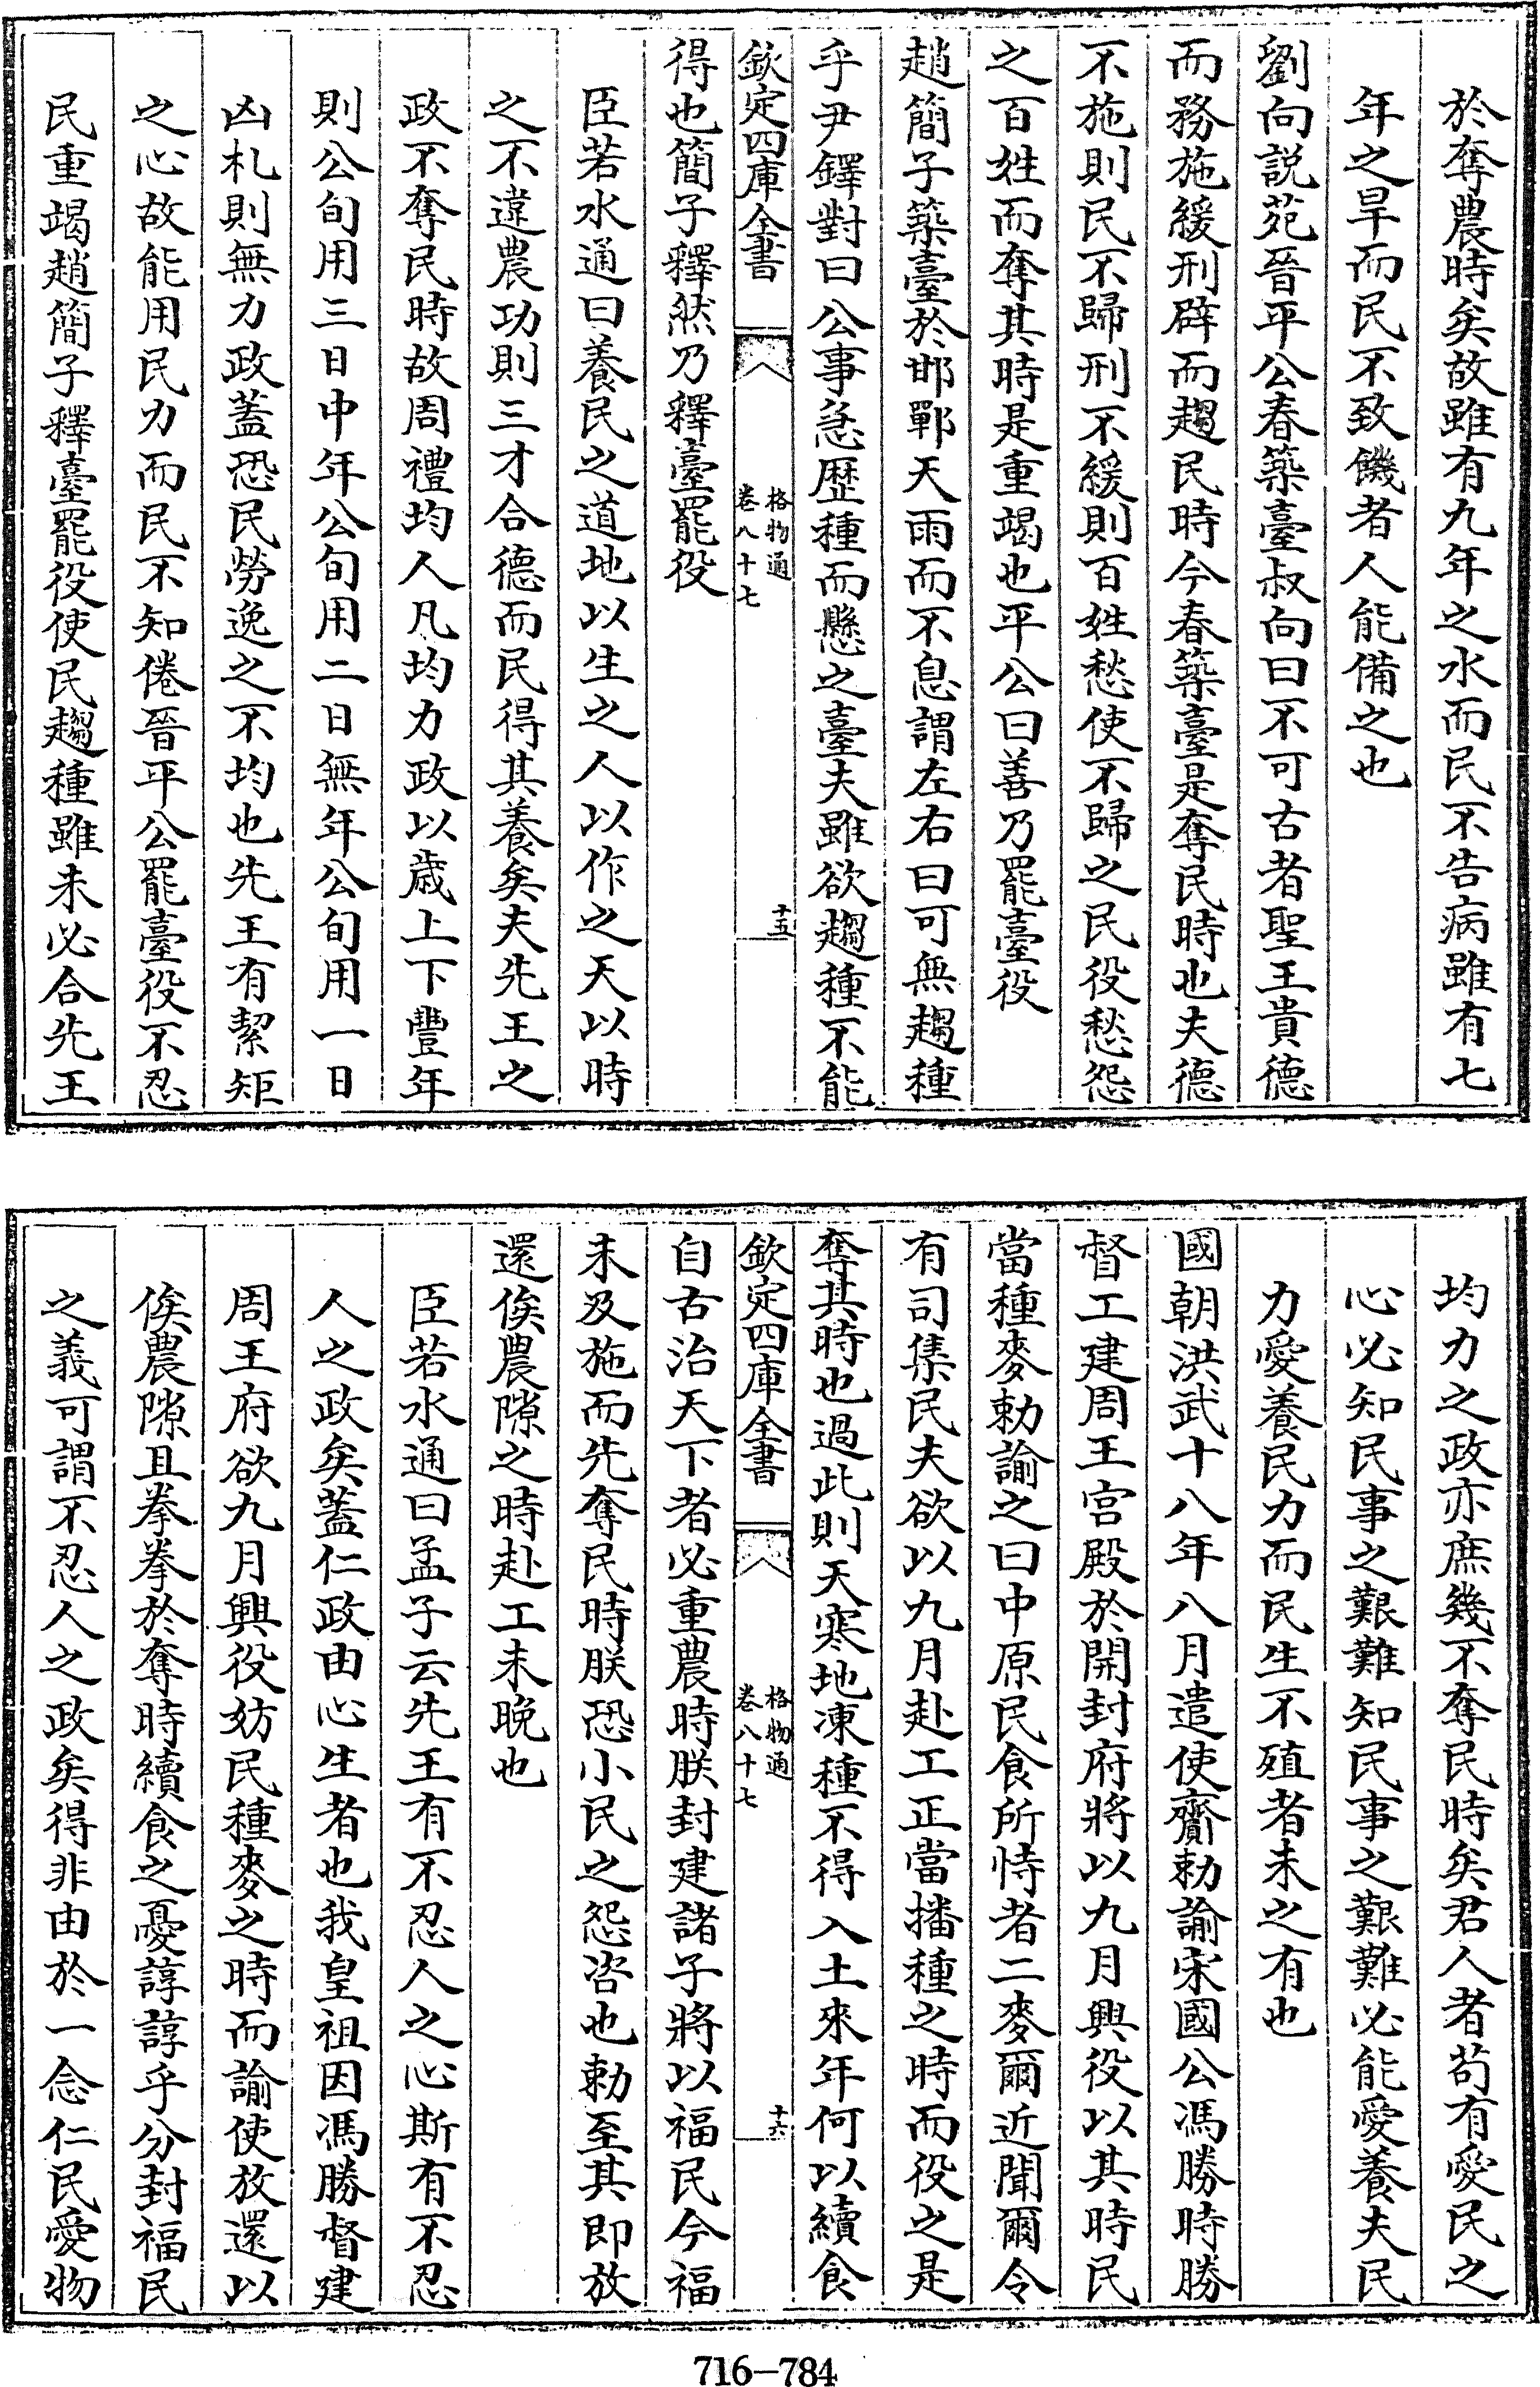 於奪農時矣故雖有九年之水而民不告病雖有七
年之旱而民不致饑者人能備之也
劉向説苑晉平公春築臺叔向曰不可古者聖王貴德
而務施緩刑辟而趨民時今春築臺是奪民時也夫德
不施則民不歸刑不緩則百姓愁使不歸之民役愁怨
之百姓而奪其時是重竭也平公曰善乃罷臺役
趙簡子築臺於邯鄲天雨而不息謂左右曰可無趨種
乎尹鐸對曰公事急歴種而懸之臺夫雖欲趨種不能
欽定四庫全書
格物通
卷八十七
十五
得也簡子釋然乃釋臺罷役
臣若水通曰養民之道地以生之人以作之天以時
之不違農功則三才合德而民得其養矣夫先王之
政不奪民時故周禮均人凡均力政以歳上下豐年
則公旬用三日中年公旬用二日無年公旬用一日
凶札則無力政蓋恐民勞逸之不均也先王有絜矩
之心故能用民力而民不知倦晉平公罷臺役不忍
民重竭趙簡子釋臺罷役使民趨種雖未必合先王
均力之政亦庶幾不奪民時矣君人者苟有愛民之
心必知民事之艱難知民事之艱難必能愛養夫民
力愛養民力而民生不殖者未之有也
國朝洪武十八年八月遣使齎勅諭宋國公馮勝時勝
督工建周王宫殿於開封府將以九月興役以其時民
當種麥勅諭之曰中原民食所恃者二麥爾近聞爾令
有司集民夫欲以九月赴工正當播種之時而役之是
奪其時也過此則天寒地凍種不得入土來年何以續食
欽定四庫全書
格物通
卷八十七
十六
自古治天下者必重農時朕封建諸子將以福民今福
未及施而先奪民時朕恐小民之怨咨也勅至其即放
還俟農隙之時赴工未晚也
臣若水通曰孟子云先王有不忍人之心斯有不忍
人之政矣蓋仁政由心生者也我皇祖因馮勝督建
周王府欲九月興役妨民種麥之時而諭使放還以
俟農隙且拳拳於奪時續食之憂諄諄乎分封福民
之義可謂不忍人之政矣得非由於一念仁民愛物
716-784